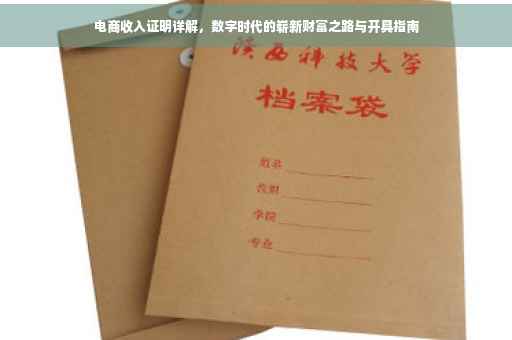 电商收入证明详解，数字时代的崭新财富之路与开具指南
陕西科技大学
档案袋
姓名
学院
专业